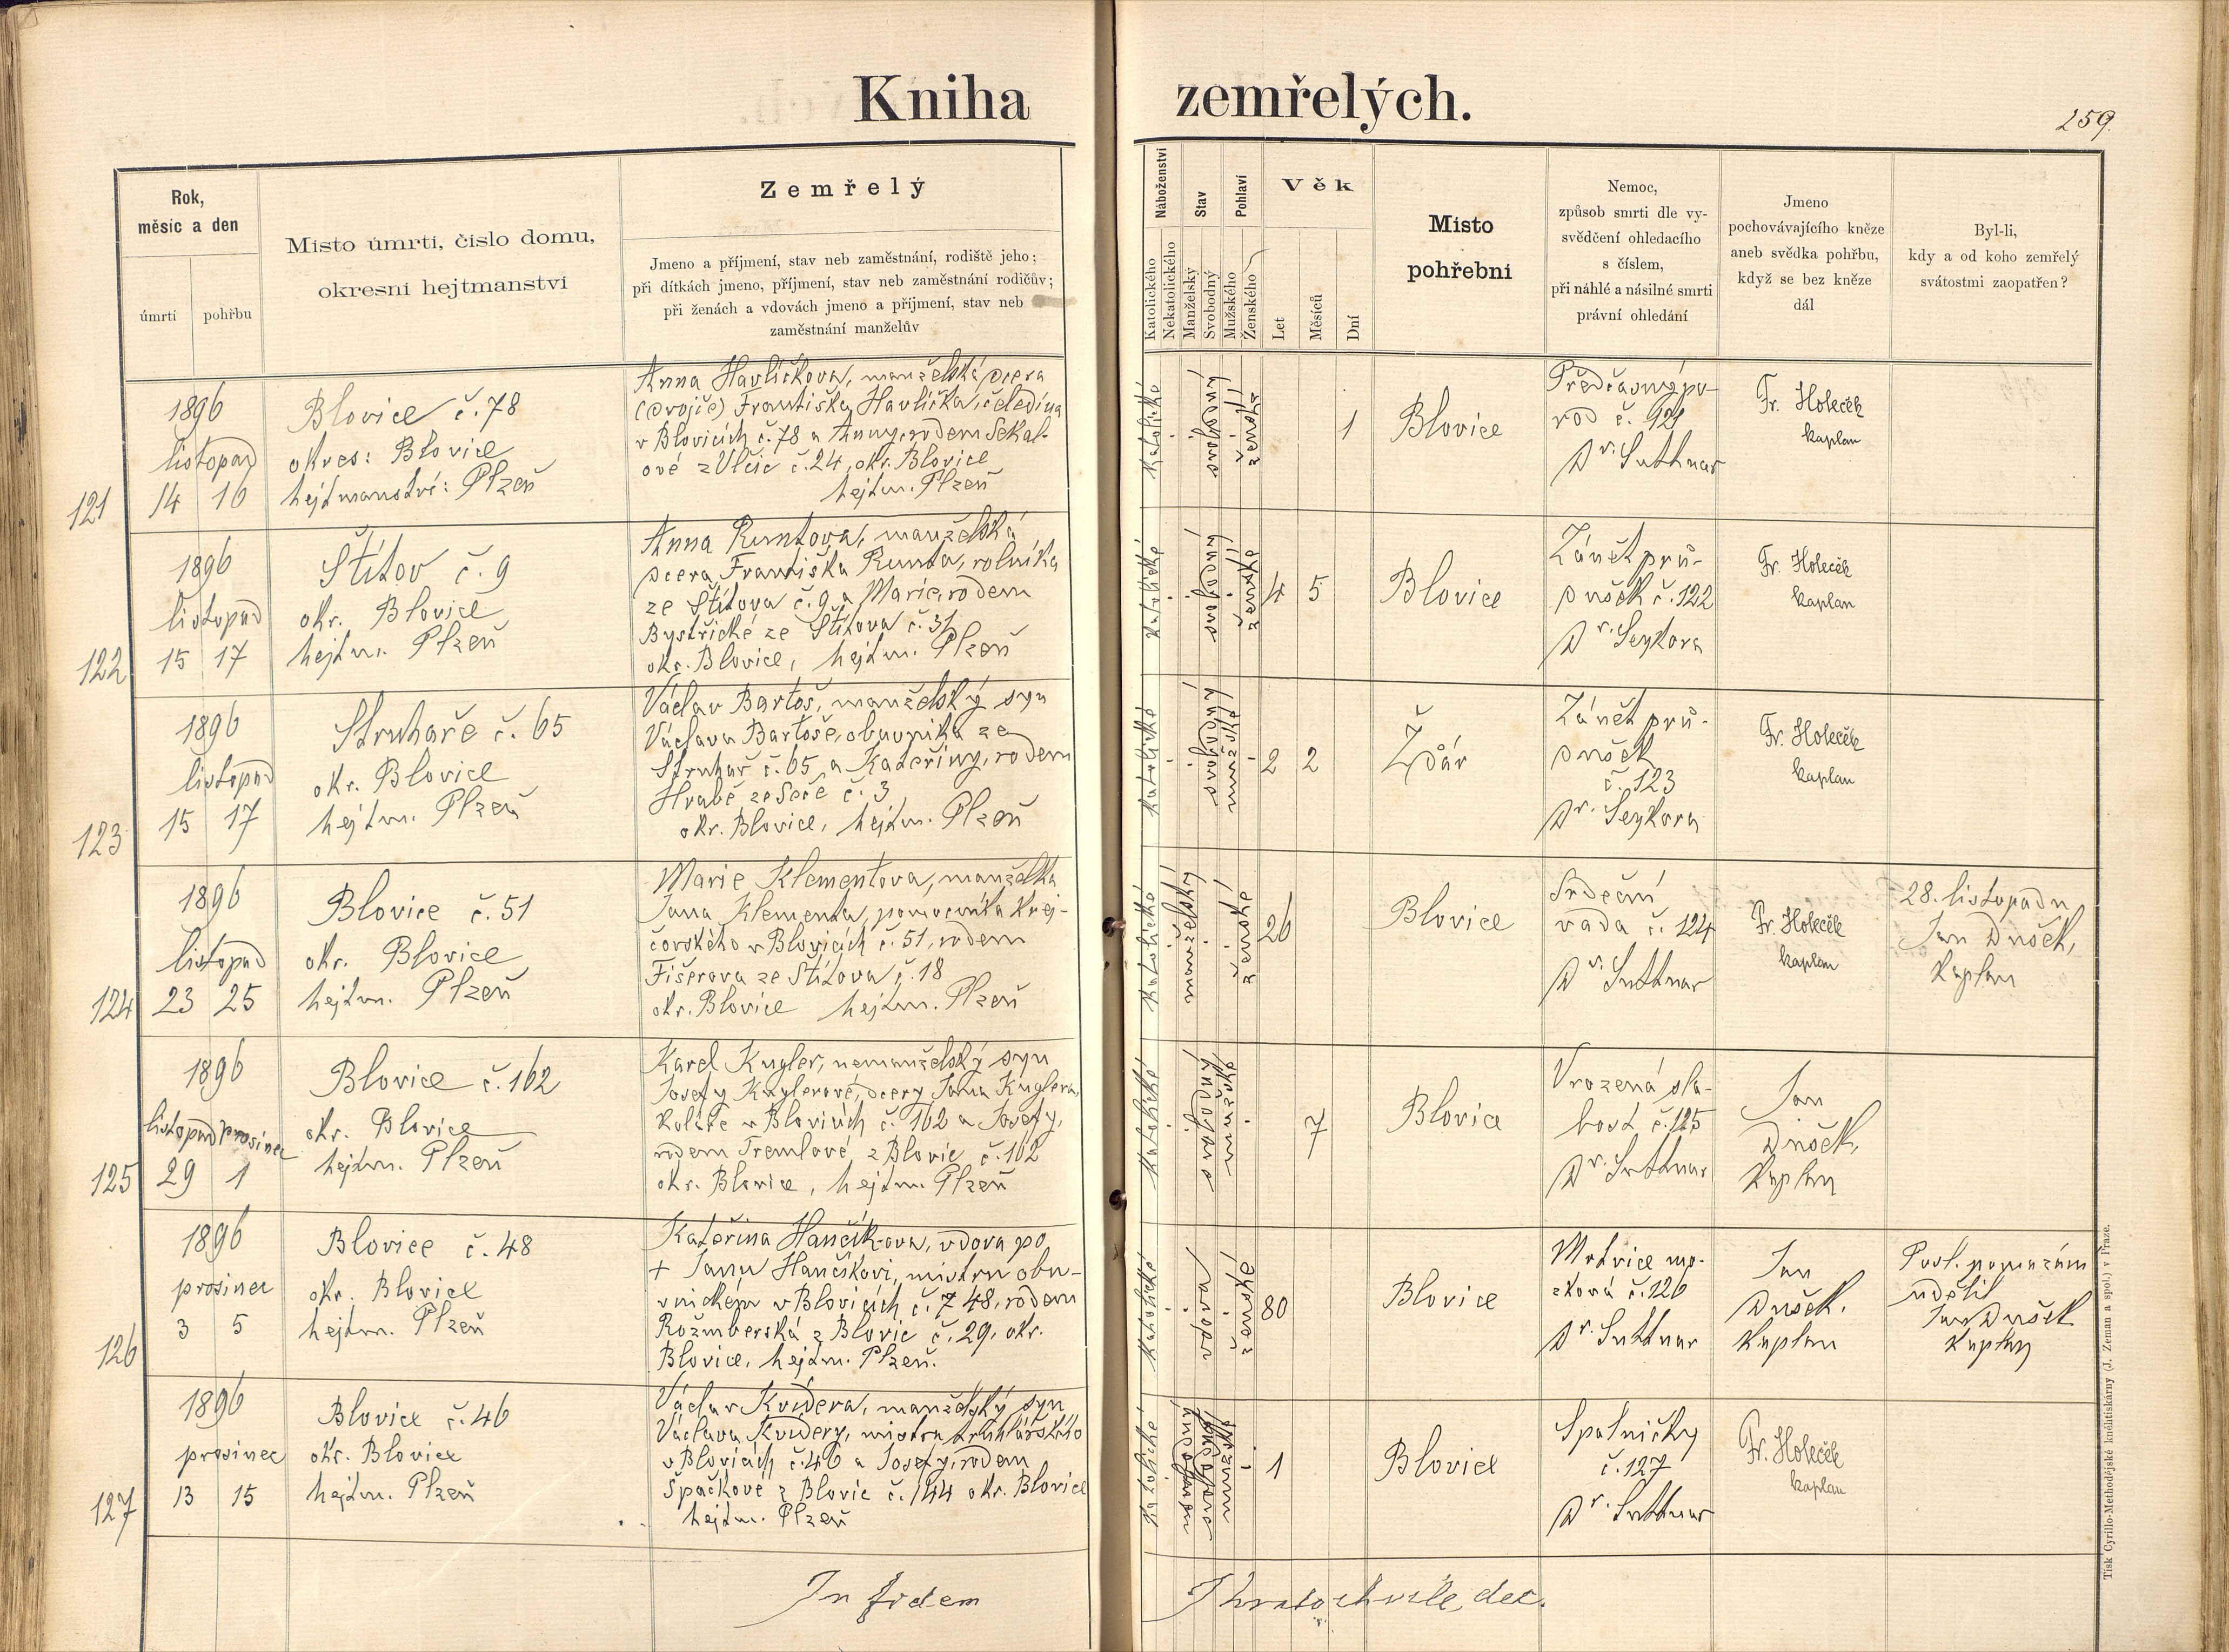 Kniha zemřelých.
259.
Rok,
měsíc a den
úmrtí
pohřbu
Místo úmrtí, číslo domu,
okresní hejtmanství
Zemřelý
Jmeno a příjmení, stav neb zaměstnání, rodiště jeho;
při dítkách jmeno, příjmení, stav neb zaměstnání rodičův;
při ženách a vdovách jmeno a příjmení, stav neb
zaměstnání manželův
Náboženství
Katolického
Nekatolického
Stav
Manželský
Svobodný
Pohlaví
Mužského
Ženského
Věk
Let
Měsíců
Dní
Místo
pohřební
Nemoc,
způsob smrti dle vy-
svědčení ohledacího
s číslem,
při náhlé a násilné smrti
právní ohledání
Jmeno
pochovávajícího kněze
aneb svědka pohřbu,
když se bez kněze
dál
Byl-li,
kdy a od koho zemřelý
svátostmi zaopatřen?
121
1896
listopad
14 16
Blovice č. 78
okres: Blovice
hejtmanství: Plzeň
Anna Havlíčkova, manželská dcera
(dvojče) Františka Havlíčka, čeledína
v Blovicích č. 78 a Anny, rodem Sekal-
ové z Vlčic č. 24, okr. Blovice
hejtm. Plzeň
Katolické
svobodný
ženské
1
Blovice
Předčasný po-
rod č. 121
Dr. Suttnar
Fr. Holeček
kaplan
122
1896
listopad
15 17
Štítov č. 9
okr. Blovice
hejtm. Plzeň
Anna Runtova, manželská
dcera Františka Runta, rolníka
ze Štítova č. 9 a Marie, rodem
Bystřické ze Štítova č. 31
okr. Blovice, hejtm. Plzeň
Katolické
svobodný
ženské
4 5
Blovice
Zánět prů-
dušek č. 122
Dr. Seykora
Fr. Holeček
kaplan
123
1896
listopad
15 17
Struhaře č. 65
okr. Blovice
hejtm. Plzeň
Václav Bartoš, manželský syn
Václava Bartoše, obuvníka ze
Struhař č. 65 a Kateřiny, rodem
Hrabě ze Seče č. 3
okr. Blovice, hejtm. Plzeň
Katolické
svobodný
mužské
2 2
Ždár
Zánět prů-
dušek
č. 123
Dr. Seykora
Fr. Holeček
kaplan
124
1896
listopad
23 25
Blovice č. 51
okr. Blovice
hejtm. Plzeň
Marie Klementova, manželka
Jana Klementa, pomocníka krej-
čovského v Blovicích č. 51, rodem
Fišerova ze Štítova č. 18
okr. Blovice hejtm. Plzeň
Katolické
manželský
ženské
26
Blovice
Srdeční
vada č. 124
Dr. Suttnar
Fr. Holeček
kaplan
28. listopadu
Jan Dušek,
kaplan
125
1896
listopad prosinec
29 1
Blovice č. 162
okr. Blovice
hejtm. Plzeň
Karel Kugler, nemanželský syn
Josefy Kuglerové, dcery Jana Kuglera,
koláře v Blovicích č. 162 a Josefy,
rodem Tremlové, z Blovic č. 162
okr. Blovice, hejtm. Plzeň
Katolické
svobodný
mužské
7
Blovice
Vrozená sla-
bost č. 125
Dr. Suttnar
Jan
Dušek,
kaplan
126
1896
prosinec
3 5
Blovice č. 48
okr. Blovice
hejtm. Plzeň
Kateřina Hančíkova, vdova po
+ Janu Hančíkovi, mistru obu-
vnickém v Blovicích č. 7 48, rodem
Rožmberská z Blovic č. 29, okr.
Blovice, hejtm. Plzeň.
Katolické
vdova
ženské
80
Blovice
Mrtvice mo-
zková č. 126
Dr. Suttnar
Jan
Dušek.
kaplan
Posl. pomazání
udělil
Jan Dušek
kaplan
127
1896
prosinec
13 15
Blovice č. 46
okr. Blovice
hejtm. Plzeň
Václav Kviděra, manželský syn
Václava Kviděry, mistra truhlářského
v Blovicích č. 46 a Josefy, rodem
Špačkové z Blovic č. 144 okr. Blovice
hejtm. Plzeň
Katolické
svobodný
mužské
1
Blovice
Spalničky
č. 127
Dr. Suttnar
Fr. Holeček
kaplan
In fidem
Tisk Cyrillo-Methodějské knihtiskárny (J. Zeman a spol.) v Praze.